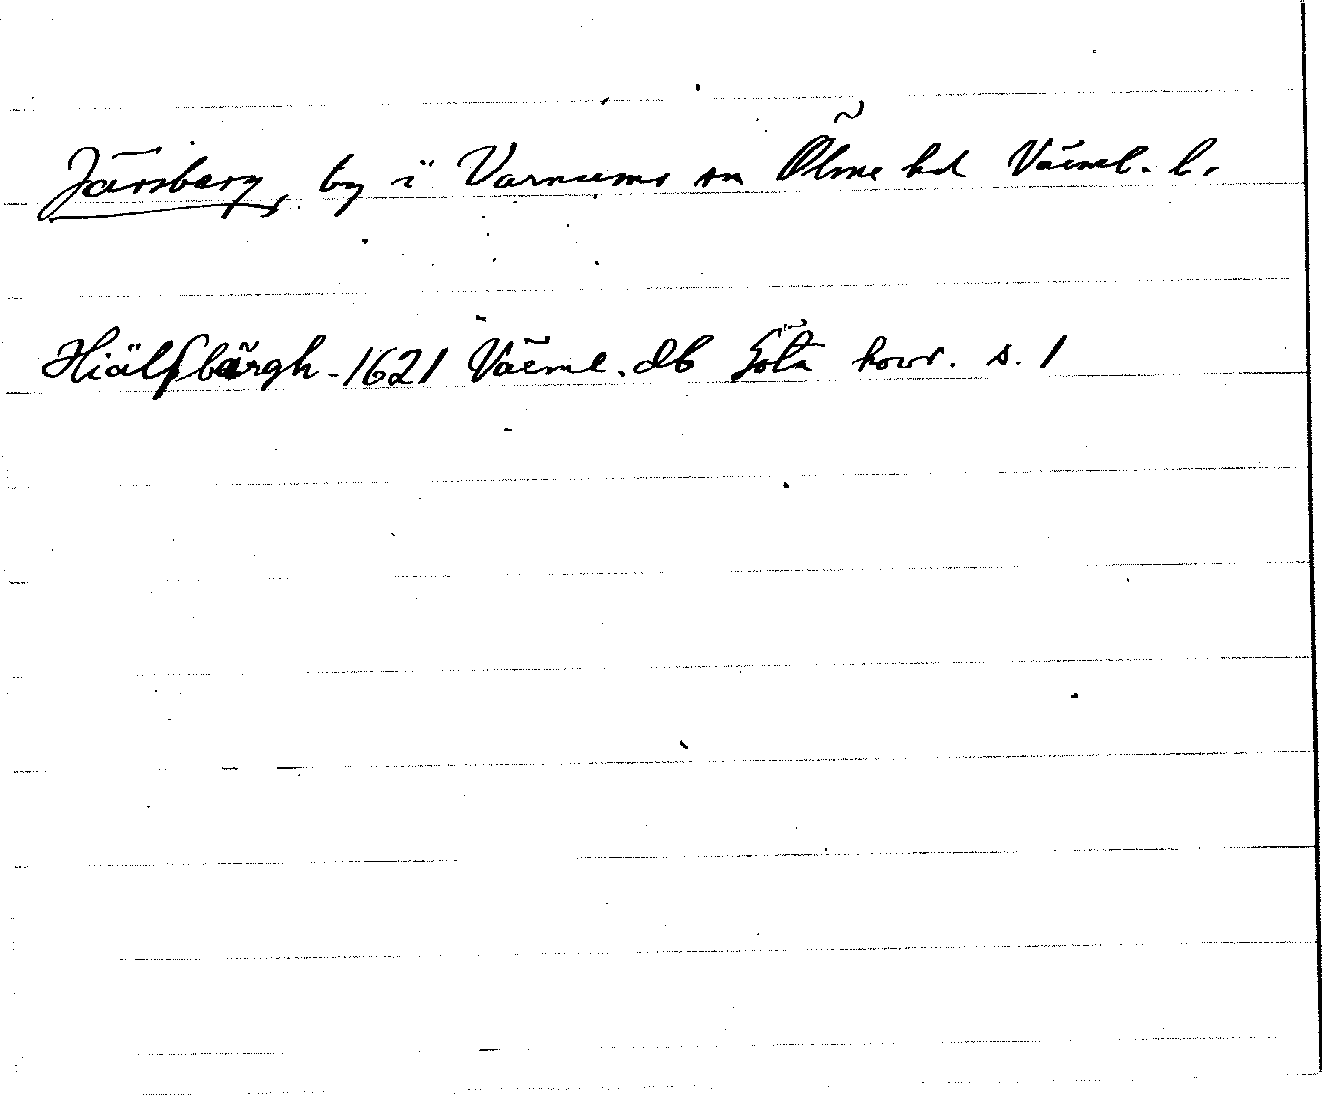 Järsberg, by i Varnums sn Ölme hd Värml. l.
Hiälpbärgh - 1621 Värml. db Göta hovr. s. 1